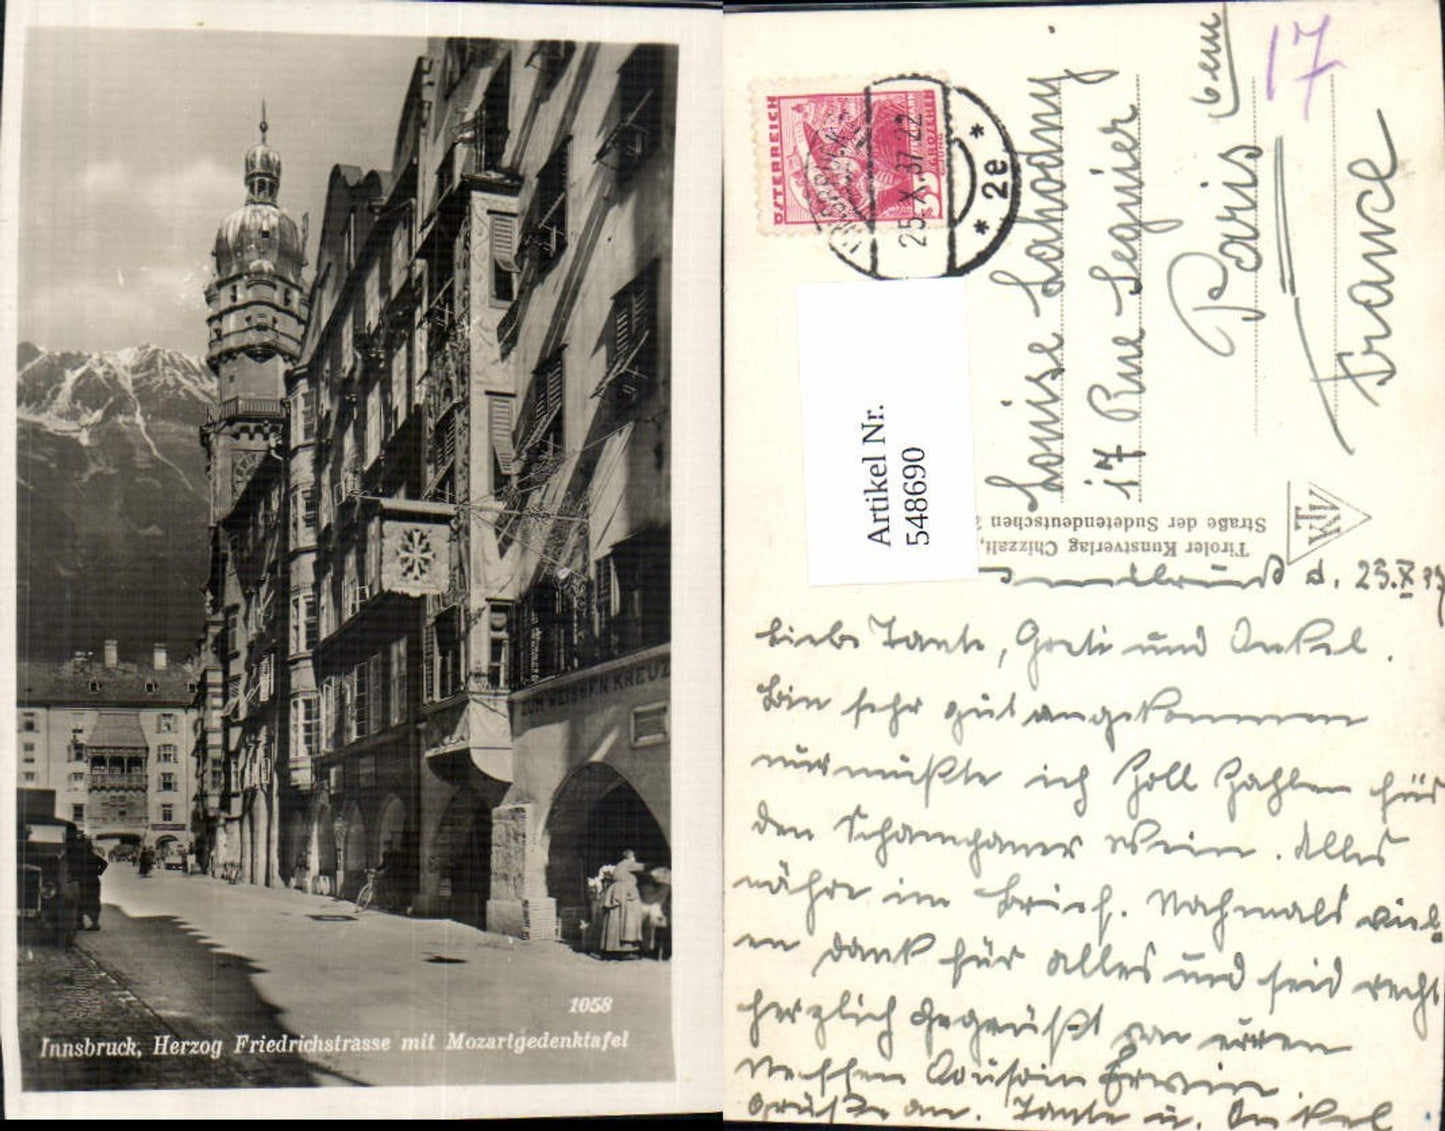 ZUM WEISSEN KREUZ
1058
Innsbruck, Herzog Friedrichstrasse mit Mozartgedenktafel
ÖSTERREICH
GROSCHEN
INNSBRUCK
25.X.37 22
* 2e *
17
Louise Lahodny
17 Rue Seguier
Paris 6em
France
Artikel Nr.
548690
Tiroler Kunstverlag Chizzali,
Straße der Sudetendeutschen
d. 25.X 37
Liebe Tante, Greti und Onkel.
Bin sehr gut angekommen
nur mußte ich Zoll zahlen für
den Schampaner Wein. Alles
nähre im Brief. Nochmals viel-
en Dank für alles und seid recht
herzlich gegrüßt von euren
Neffen Cousin Erwin.
Grüße an. Tante u. Onkel